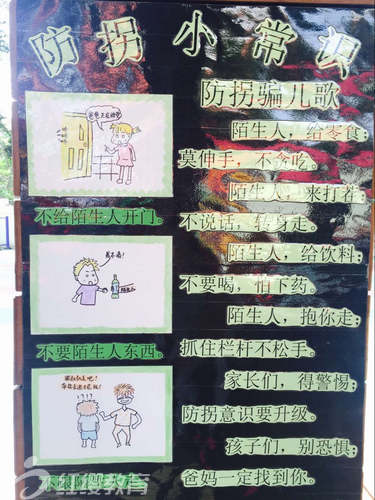 防拐小常识
爸爸不在家
不给陌生人开门。
我不喝!
不要陌生人东西。
防拐骗儿歌
陌生人,给零食;
莫伸手,不贪吃。
陌生人,来打茬;
不说话,转身走。
陌生人,给饮料;
不要喝,怕下药。
陌生人,抱你走;
抓住栏杆不松手。
家长们,得警惕;
防拐意识要升级。
孩子们,别恐惧;
爸妈一定找到你。
教育